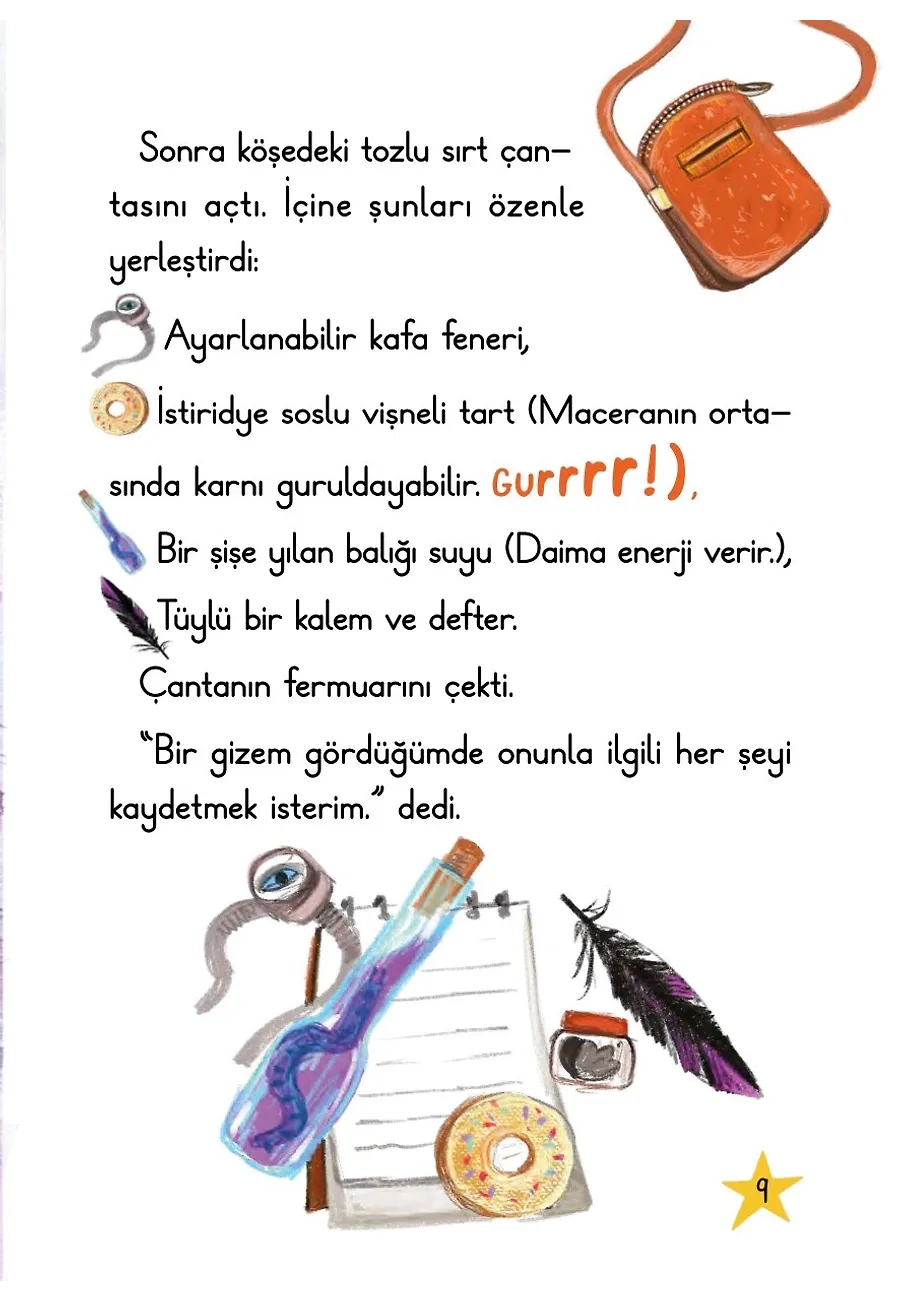 Sonra köşedeki tozlu sırt çan-
tasını açtı. İçine şunları özenle
yerleştirdi:
Ayarlanabilir kafa feneri,
İstiridye soslu vişneli tart (Maceranın orta-
sında karnı guruldayabilir. Gurrrr!),
Bir şişe yılan balığı suyu (Daima enerji verir.),
Tüylü bir kalem ve defter.
Çantanın fermuarını çekti.
“Bir gizem gördüğümde onunla ilgili her şeyi
kaydetmek isterim.” dedi.
9